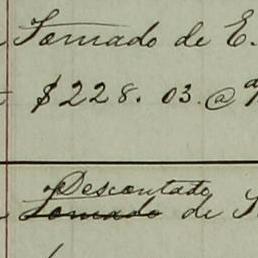 Tomado de E.
$228. 03. @
Descontado
Tomado de